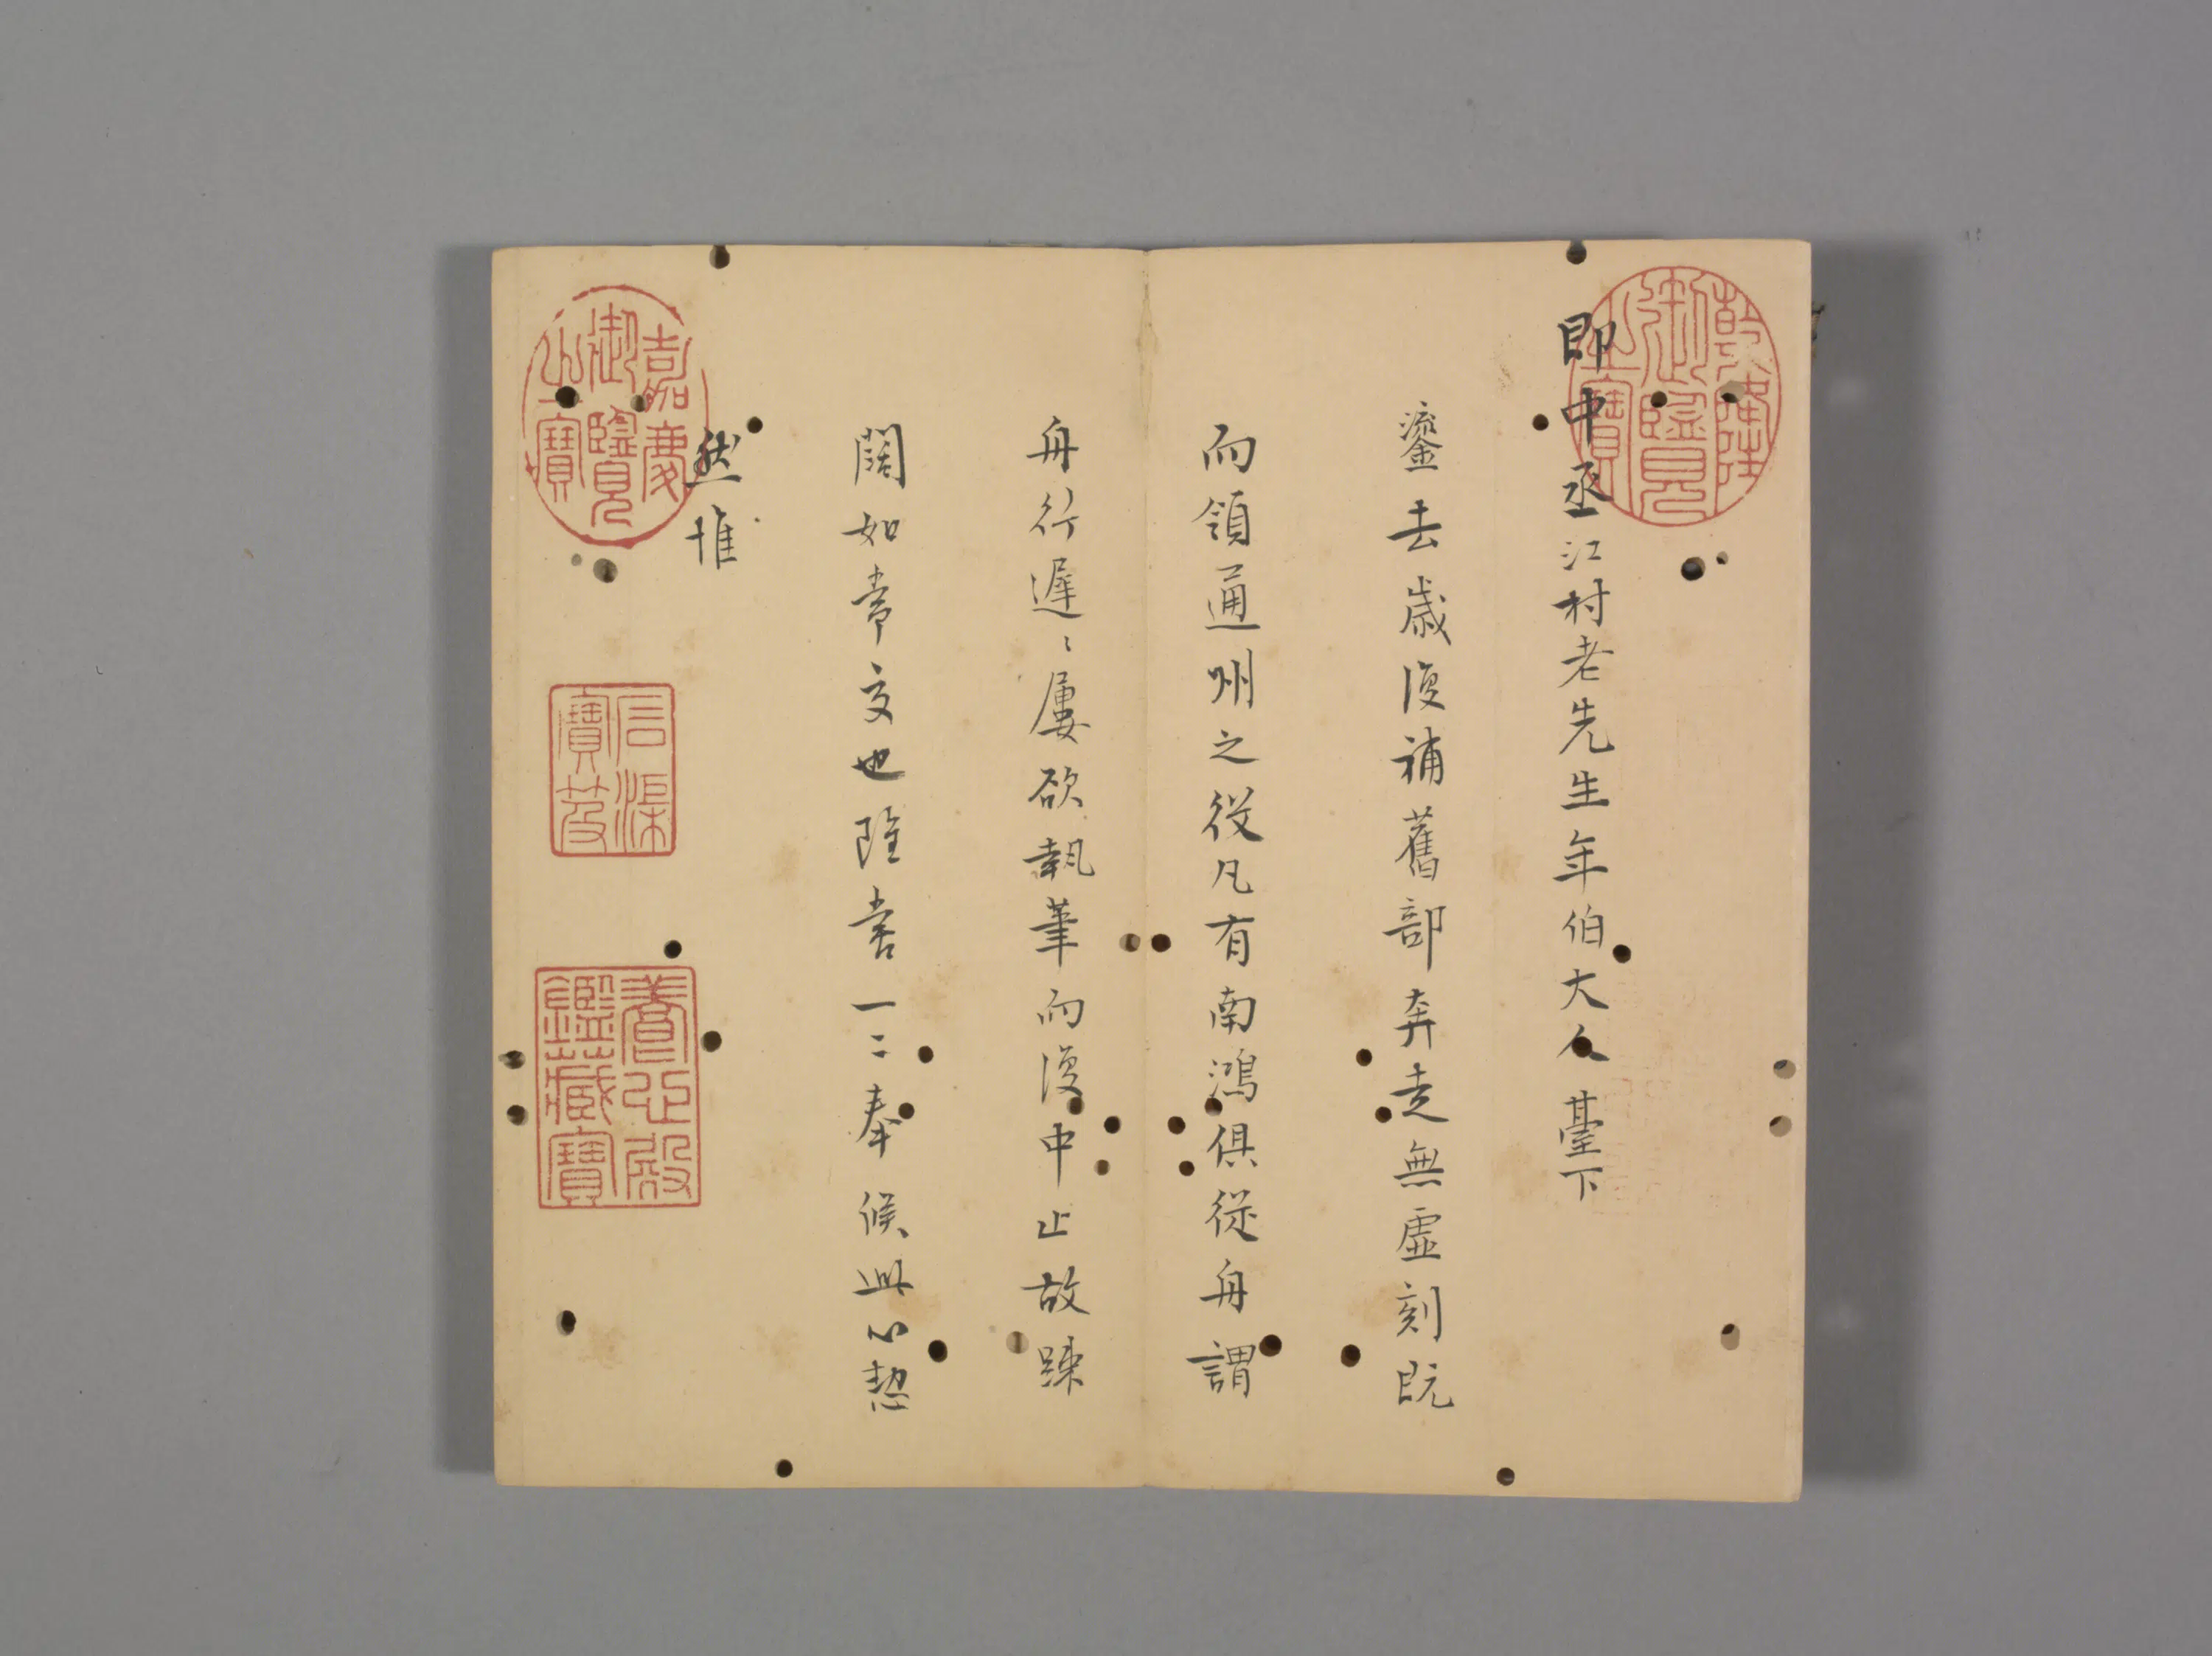 乾隆御覽之寶
即中丞江村老先生年伯大人臺下
鎏去歲復補舊部奔走無虛刻既
而領通州之役凡有南鴻俱從舟謂
舟行遲〻屢欲執筆而復中止故踈
闊如常交也雖嘗一二奉候此心恝
然惟
嘉慶御覽之寶
石渠寶笈
養心殿鑑藏寶